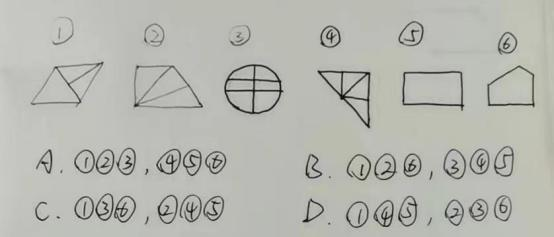 ① ② ③ ④ ⑤ ⑥
A. ①②③, ④⑤⑥
B. ①②⑥, ③④⑤
C. ①③⑥, ②④⑤
D. ①④⑤, ②③⑥